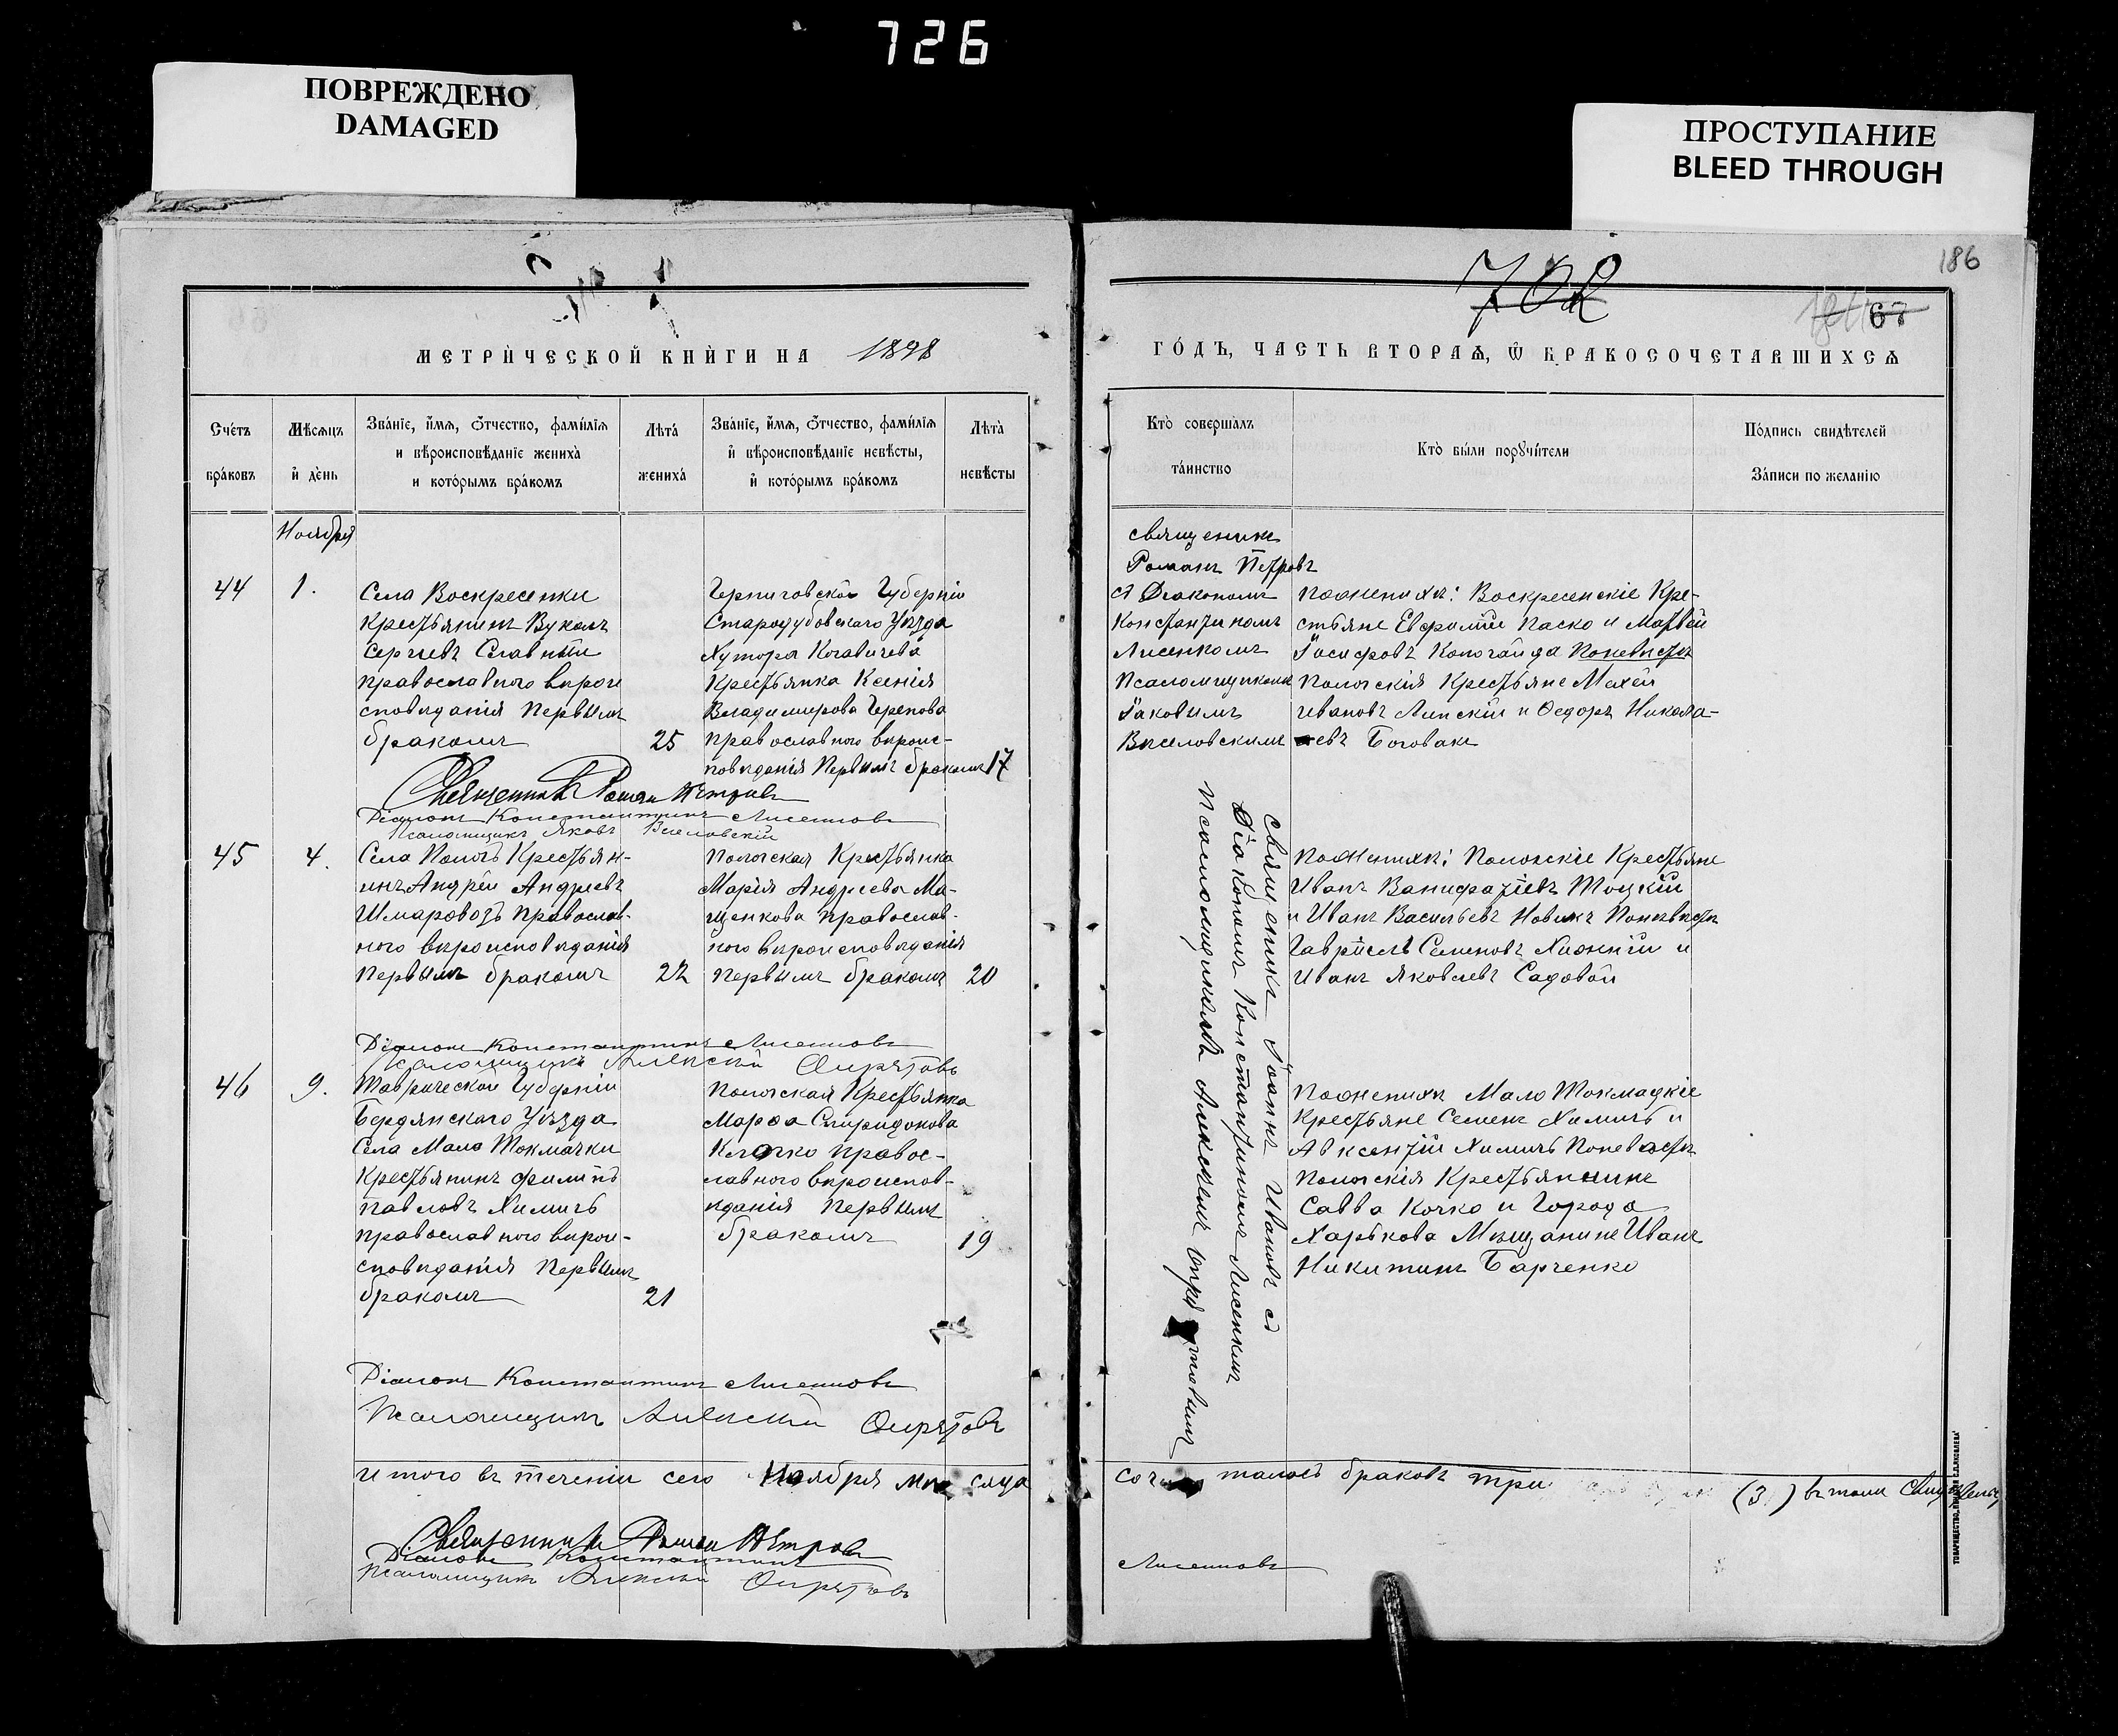 726
ПОВРЕЖДЕНО
DAMAGED
ПРОСТУПАНИЕ
BLEED THROUGH
186
702
67
МЕТРИ́ЧЕСКОЙ КНИ́ГИ НА 1898
ГО́ДЪ, ЧАСТЬ ВТОРАѦ, Ѿ БРАКОСОЧЕТАВШИХСѦ
Сче́тъ
бра́ковъ
Мѣсѧцъ
и҆ де́нь
Зва́нїе, и҆́мѧ, ѻ҆́тчество, фами́лїѧ
и вѣроисповѣ́данїе жениха̀
и кото́рымъ бра́комъ
Лѣта́
жениха́
Зва́нїе, и҆́мѧ, ѻ҆́тчество, фами́лїѧ
и҆ вѣроисповѣ́данїе невѣ́сты,
и҆ кото́рымъ бра́комъ
Лѣта̀
невѣ́сты
Кто̀ соверша́лъ
та́инство
Кто̀ бы́ли порꙋчи́тели
По́дпись свидѣ́телей
За́писи по жела́нїю
Ноября
44
1.
Села Воскресенки
Крестьянинъ Вуколъ
Сергіевъ Славный
православнаго вѣрои
сповѣданія Первымъ
бракомъ
25
Черниговской Губерніи
Стародубовскаго Уѣзда
Хутора
Крестьянка Ксенія
Владимирова Черепова
православнаго вѣроис-
повѣданія Первымъ бракомъ
17
священникъ
Романъ Петровъ
съ Діакономъ
Константиномъ
Лисенкомъ
Псаломщикомъ
Іаковымъ
Виселовскимъ
по женихѣ: Воскресенскіе Кре-
стьяне Евфимій Паско и Матвѣй
Іосифовъ Копогайда по невѣстѣ
Пологскія Крестьяне Мохей
Ивановъ Липскій и Ѳедоръ Никола-
евъ Боговикъ
Священникъ Роман Петровъ
Діаконъ Константинъ Лисенковъ
Псаломщикъ Яковъ Виселовскій
45
4.
Села Пологъ Крестьян-
инъ Андрей Андреевъ
Шмаровозъ Православ-
ного вѣроисповѣданія
Первымъ бракомъ
22
Пологская Крестьянка
Марія Андреева Ма-
щенкова Православ-
ного вѣроисповѣданія
Первымъ бракомъ
20
по женихѣ: Пологскіе Крестьяне
Иванъ Ванифатіевъ Тоцкій
и Иванъ Васильевъ Новикъ По невѣстѣ
Гавріилъ Семеновъ Хижній и
Иванъ Яковлевъ Садовой
Діаконъ Константинъ Лисенковъ
Псаломщикъ Алексѣй Опрятовъ
46
9.
Таврической Губерніи
Бердянскаго Уѣзда
Села Мало Токмачки
Крестьянинъ Филипъ
Павловъ Химичъ
православного вѣрои-
сповѣданія Первымъ
бракомъ
21
Пологская Крестьянка
Марѳа Спиридонова
Клочко Правос-
лавного вѣроиспов-
ѣданія Первымъ
бракомъ
19
Священникъ Іоаннъ Ивановъ съ
Діакономъ Константиномъ Лисенкимъ
Псаломщикомъ Алексѣемъ Опрятновымъ
По женихѣ Мало Токмацкіе
Крестьяне Семенъ Химичъ и
Авксентій Химичъ По невѣстѣ
Пологскія Крестьянинъ
Савва Кочко и Города
Харькова Мѣщанине Иванъ
Никитинъ Барченко
Діаконъ Константинъ Лисенковъ
Псаломщикъ Алексѣй Опрятовъ
итого въ теченіи сего Ноября мѣсяца
браковъ три (3)
Священникъ Роман Петровъ
Діаконъ Константинъ Лисенковъ
Псаломщикъ Алексѣй Опрятовъ